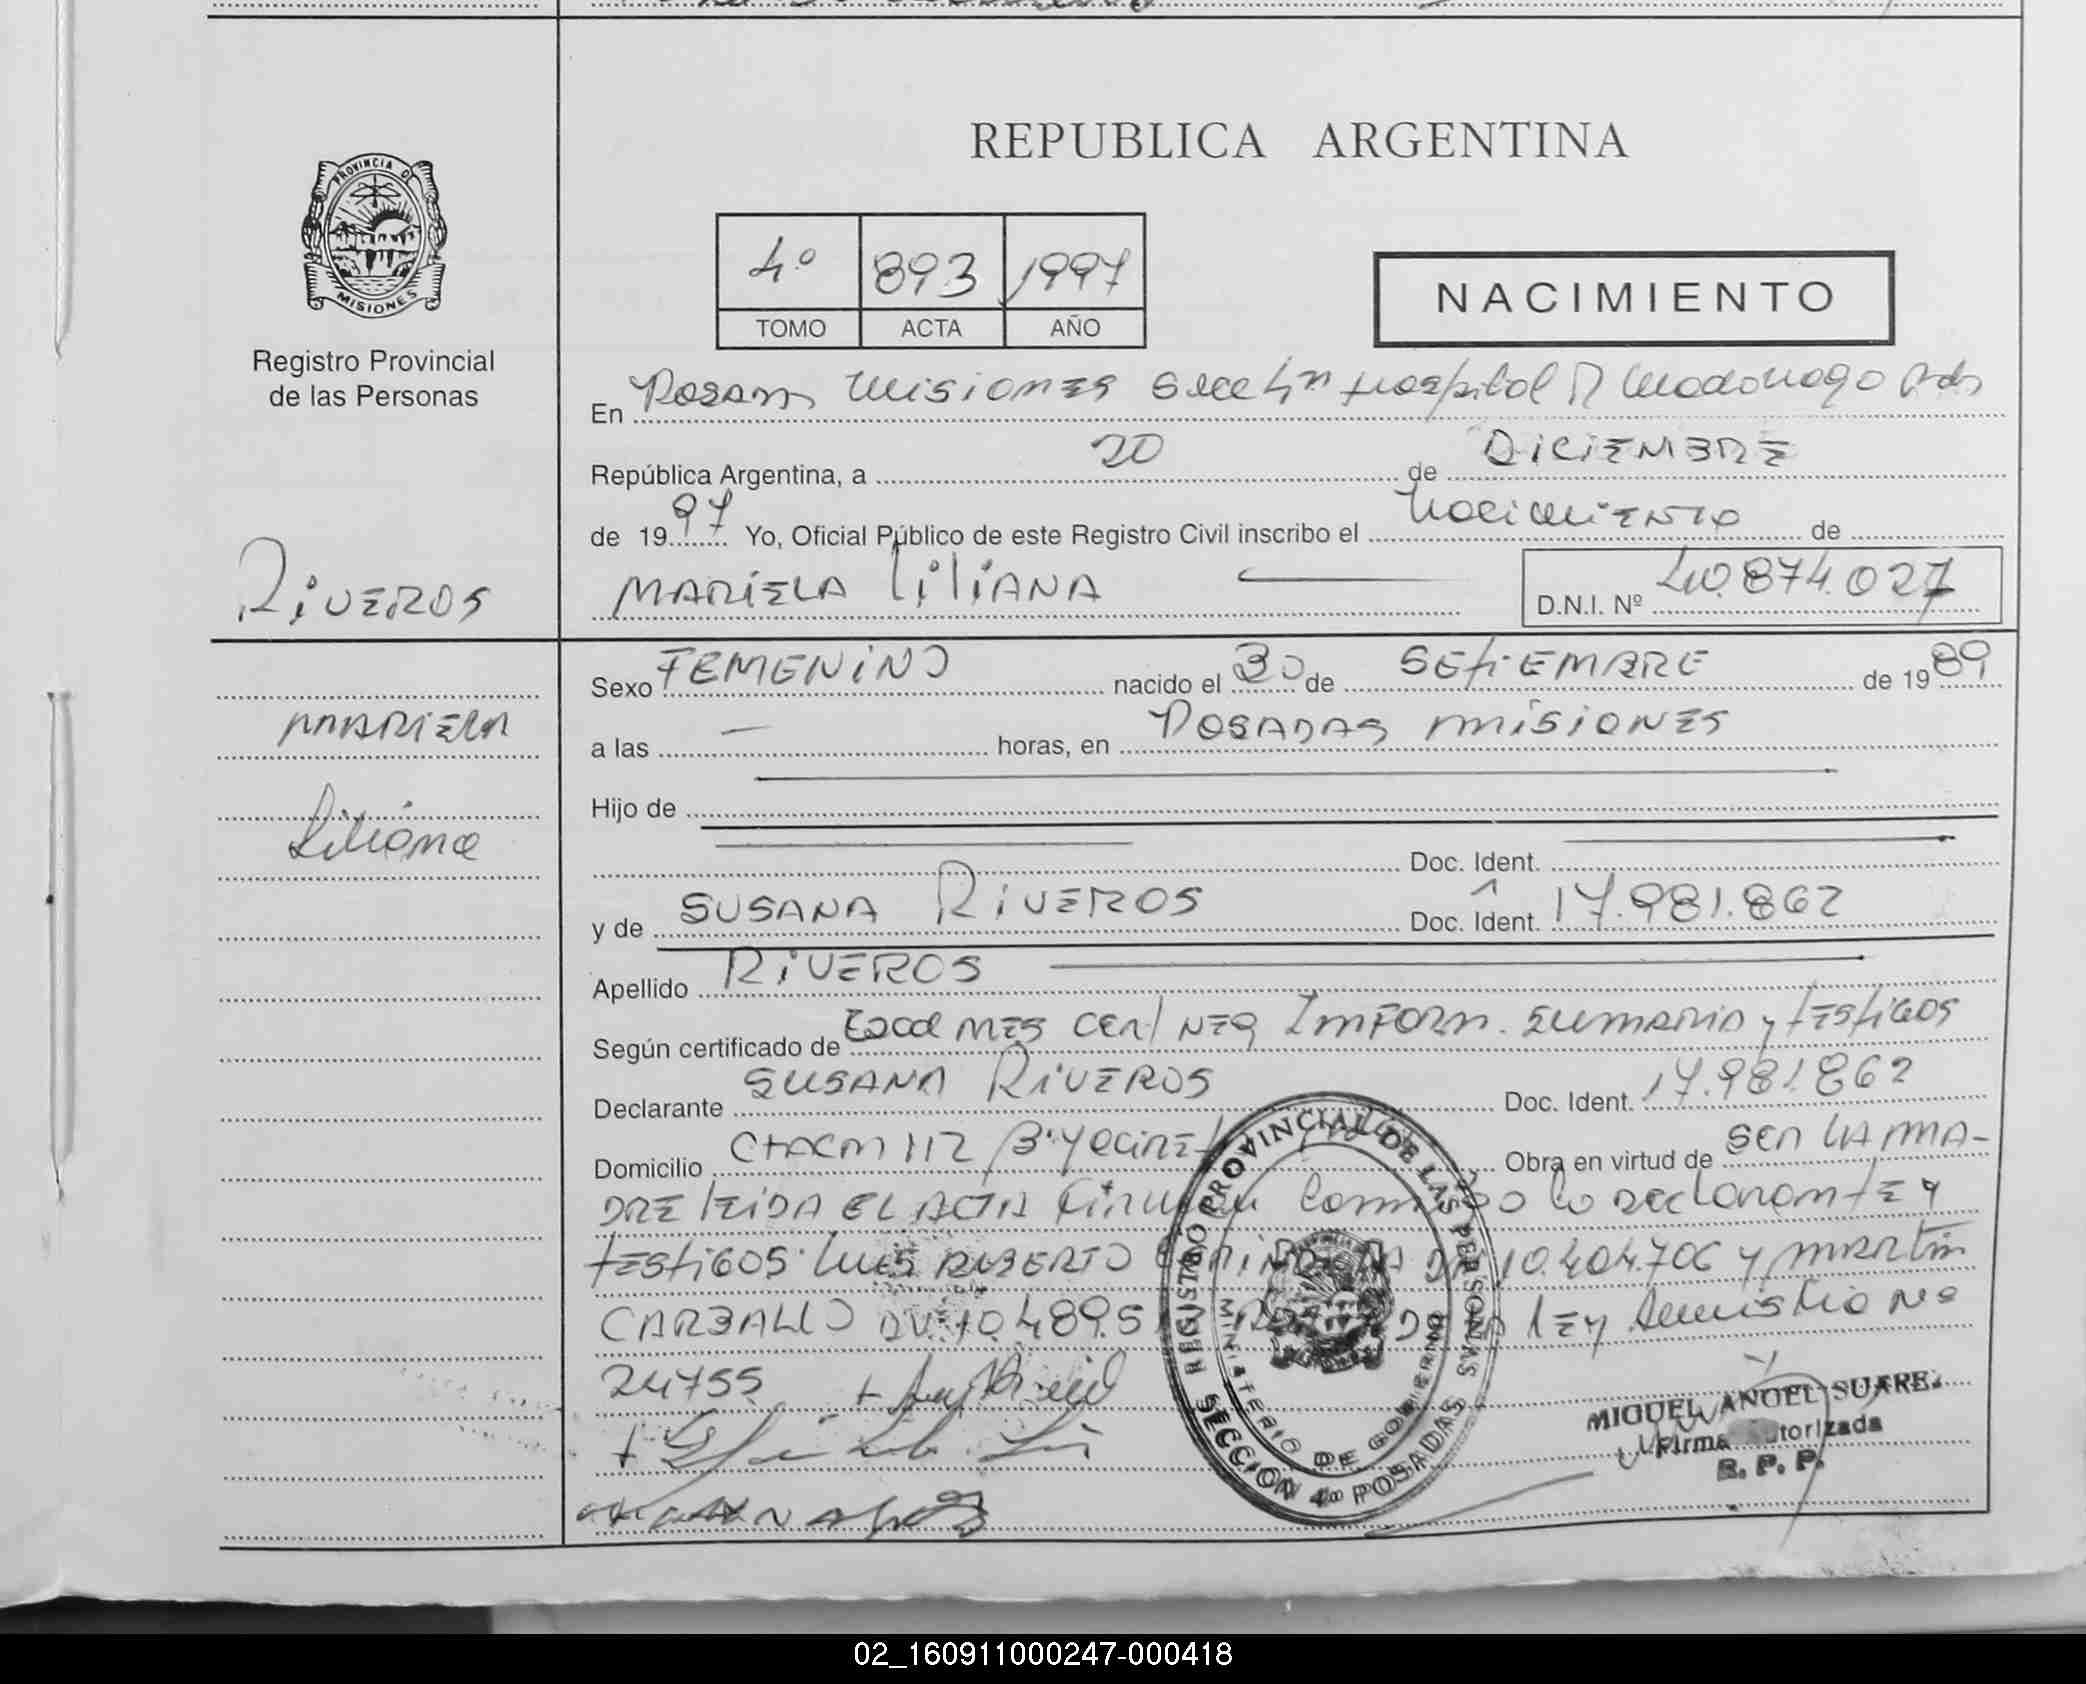 REPUBLICA ARGENTINA
PROVINCIA DE
MISIONES
Registro Provincial
de las Personas
4º 893 1997
TOMO ACTA AÑO
NACIMIENTO
En Posadas Misiones Secc 4ta Hospital R Madariaga Pdas
República Argentina, a 20 de DICIEMBRE
de 1997 Yo, Oficial Público de este Registro Civil inscribo el Nacimiento de
RIVEROS
MARIELA LILIANA
D.N.I. Nº 40.874.027
MARIELA
Liliana
Sexo FEMENINO nacido el 30 de SETIEMBRE de 1989
a las — horas, en POSADAS MISIONES
Hijo de
Doc. Ident.
y de SUSANA RIVEROS Doc. Ident. 17.981.862
Apellido RIVEROS
Según certificado de CERT NEG INFORM. SUMARIA y TESTIGOS
Declarante SUSANA RIVEROS Doc. Ident. 17.981.862
Domicilio CHACRA 112 Bº Obra en virtud de SER LA MA-
DRE LEIDA EL ACTA Firman Conmigo la Declarante y
TESTIGOS: LUIS ROBERTO 10.404.706 y MARTIN
CARBALLO LEY Amnistia Nº
24755
REGISTRO PROVINCIAL DE LAS PERSONAS
MINISTERIO DE GOBIERNO
SECCION 4ª POSADAS
MIGUEL ANGEL SUAREZ
Firma Autorizada
R. P. P.
02_160911000247-000418